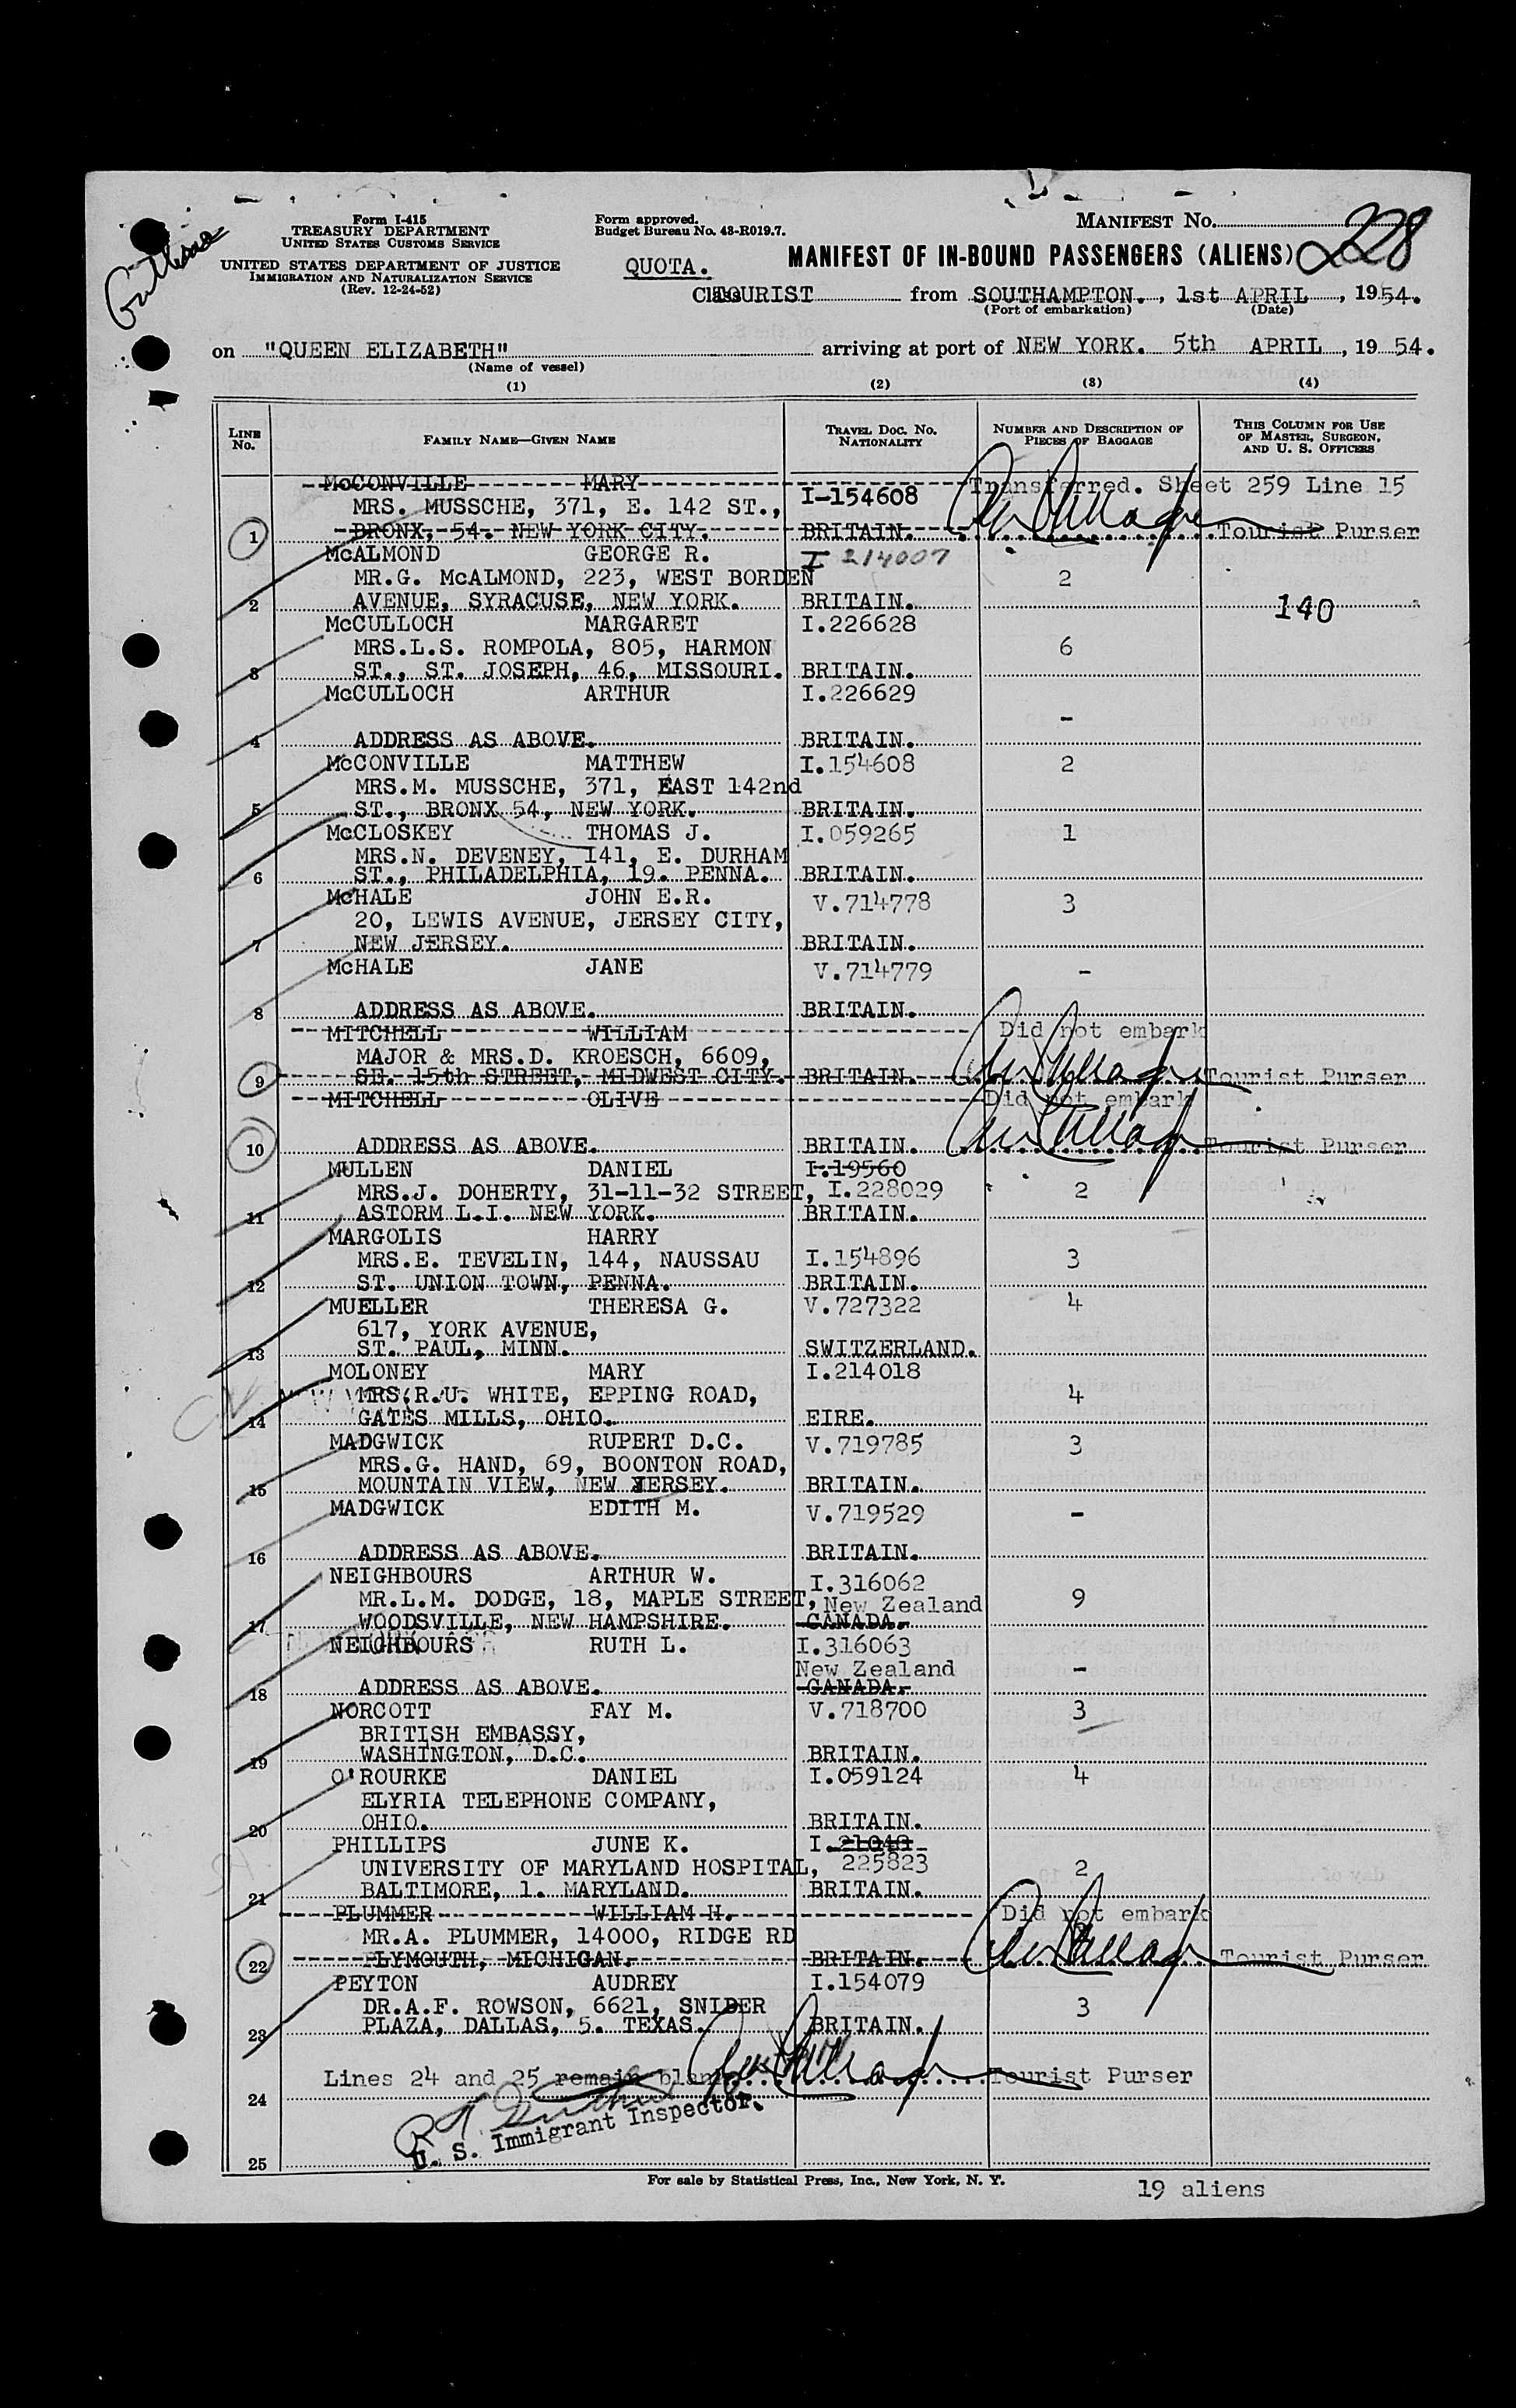 Form I-415
TREASURY DEPARTMENT
UNITED STATES CUSTOMS SERVICE
UNITED STATES DEPARTMENT OF JUSTICE
IMMIGRATION AND NATURALIZATION SERVICE
(Rev. 12-24-52)
Form approved.
Budget Bureau No. 43-R019.7.
MANIFEST No. 228
MANIFEST OF IN-BOUND PASSENGERS (ALIENS)
QUOTA.
Class TOURIST from SOUTHAMPTON., 1st APRIL, 1954.
(Port of embarkation) (Date)
on "QUEEN ELIZABETH" arriving at port of NEW YORK. 5th APRIL, 1954.
(Name of vessel)
(1) (2) (3) (4)
LINE No. FAMILY NAME—GIVEN NAME TRAVEL DOC. No. NATIONALITY NUMBER AND DESCRIPTION OF PIECES OF BAGGAGE THIS COLUMN FOR USE OF MASTER, SURGEON, AND U. S. OFFICERS
McCONVILLE MARY Transferred. Sheet 259 Line 15
MRS. MUSSCHE, 371, E. 142 ST., I-154608
1 BRONX, 54. NEW YORK CITY. BRITAIN. Tourist Purser
McALMOND GEORGE R. I 214007
MR.G. McALMOND, 223, WEST BORDEN 2
2 AVENUE, SYRACUSE, NEW YORK. BRITAIN. 140
McCULLOCH MARGARET I.226628
MRS.L.S. ROMPOLA, 805, HARMON 6
3 ST., ST. JOSEPH, 46, MISSOURI. BRITAIN.
McCULLOCH ARTHUR I.226629
-
4 ADDRESS AS ABOVE. BRITAIN.
McCONVILLE MATTHEW I.154608 2
MRS.M. MUSSCHE, 371, EAST 142nd
5 ST., BRONX 54, NEW YORK. BRITAIN.
McCLOSKEY THOMAS J. I.059265 1
MRS.N. DEVENEY, 141, E. DURHAM
6 ST., PHILADELPHIA, 19. PENNA. BRITAIN.
McHALE JOHN E.R. V.714778 3
20, LEWIS AVENUE, JERSEY CITY,
7 NEW JERSEY. BRITAIN.
McHALE JANE V.714779 -
8 ADDRESS AS ABOVE. BRITAIN.
MITCHELL WILLIAM Did not embark
MAJOR & MRS.D. KROESCH, 6609,
9 SE. 15th STREET, MIDWEST CITY. BRITAIN. Tourist Purser
MITCHELL OLIVE Did not embark
10 ADDRESS AS ABOVE. BRITAIN. Tourist Purser
MULLEN DANIEL I.19560
MRS.J. DOHERTY, 31-11-32 STREET, I.228029 2
11 ASTORM L.I. NEW YORK. BRITAIN.
MARGOLIS HARRY
MRS.E. TEVELIN, 144, NAUSSAU I.154896 3
12 ST. UNION TOWN, PENNA. BRITAIN.
MUELLER THERESA G. V.727322 4
617, YORK AVENUE,
13 ST. PAUL, MINN. SWITZERLAND.
MOLONEY MARY I.214018
MRS.R.U. WHITE, EPPING ROAD, 4
14 GATES MILLS, OHIO. EIRE.
MADGWICK RUPERT D.C. V.719785 3
MRS.G. HAND, 69, BOONTON ROAD,
15 MOUNTAIN VIEW, NEW JERSEY. BRITAIN.
MADGWICK EDITH M. V.719529 -
16 ADDRESS AS ABOVE. BRITAIN.
NEIGHBOURS ARTHUR W. I.316062
MR.L.M. DODGE, 18, MAPLE STREET, New Zealand 9
17 WOODSVILLE, NEW HAMPSHIRE. CANADA.
NEIGHBOURS RUTH L. I.316063
New Zealand -
18 ADDRESS AS ABOVE. CANADA.
NORCOTT FAY M. V.718700 3
BRITISH EMBASSY,
19 WASHINGTON, D.C. BRITAIN.
O'ROURKE DANIEL I.059124 4
ELYRIA TELEPHONE COMPANY,
20 OHIO. BRITAIN.
PHILLIPS JUNE K. I.
UNIVERSITY OF MARYLAND HOSPITAL, 225823 2
21 BALTIMORE, 1. MARYLAND. BRITAIN.
PLUMMER WILLIAM H. Did not embark
MR.A. PLUMMER, 14000, RIDGE RD
22 PLYMOUTH, MICHIGAN. BRITAIN. Tourist Purser
PEYTON AUDREY I.154079
DR.A.F. ROWSON, 6621, SNIDER 3
23 PLAZA, DALLAS, 5. TEXAS. BRITAIN.
Lines 24 and 25 remain blank Tourist Purser
24
U. S. Immigrant Inspector.
25
For sale by Statistical Press, Inc., New York, N. Y.
19 aliens